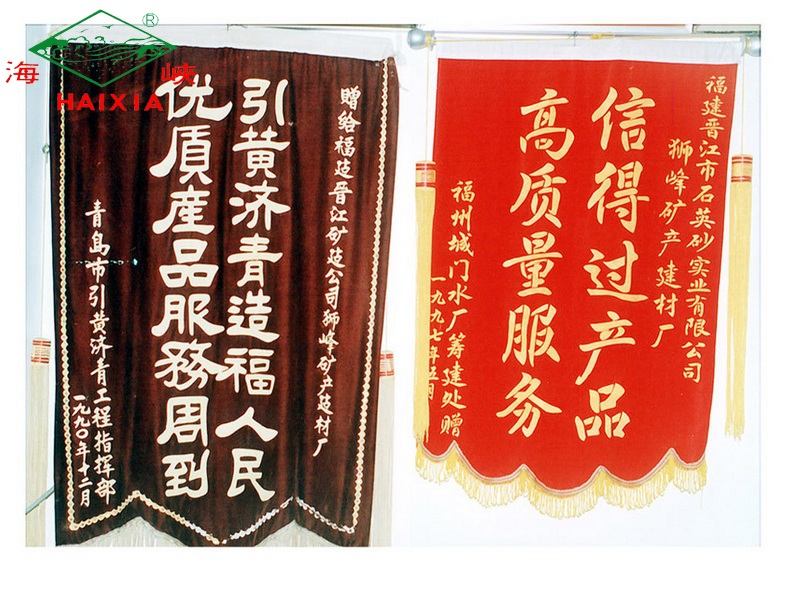 海 峡
®
HAIXIA
贈给福建晋江矿建公司狮峰矿产建材厂
引黄济青造福人民
优质産品服務周到
青島市引黄济青工程指挥部
一九九〇年十二月
福建晋江市石英砂实业有限公司
狮峰矿产建材厂
信得过产品
高质量服务
福州城门水厂筹建处赠
一九九七年五月